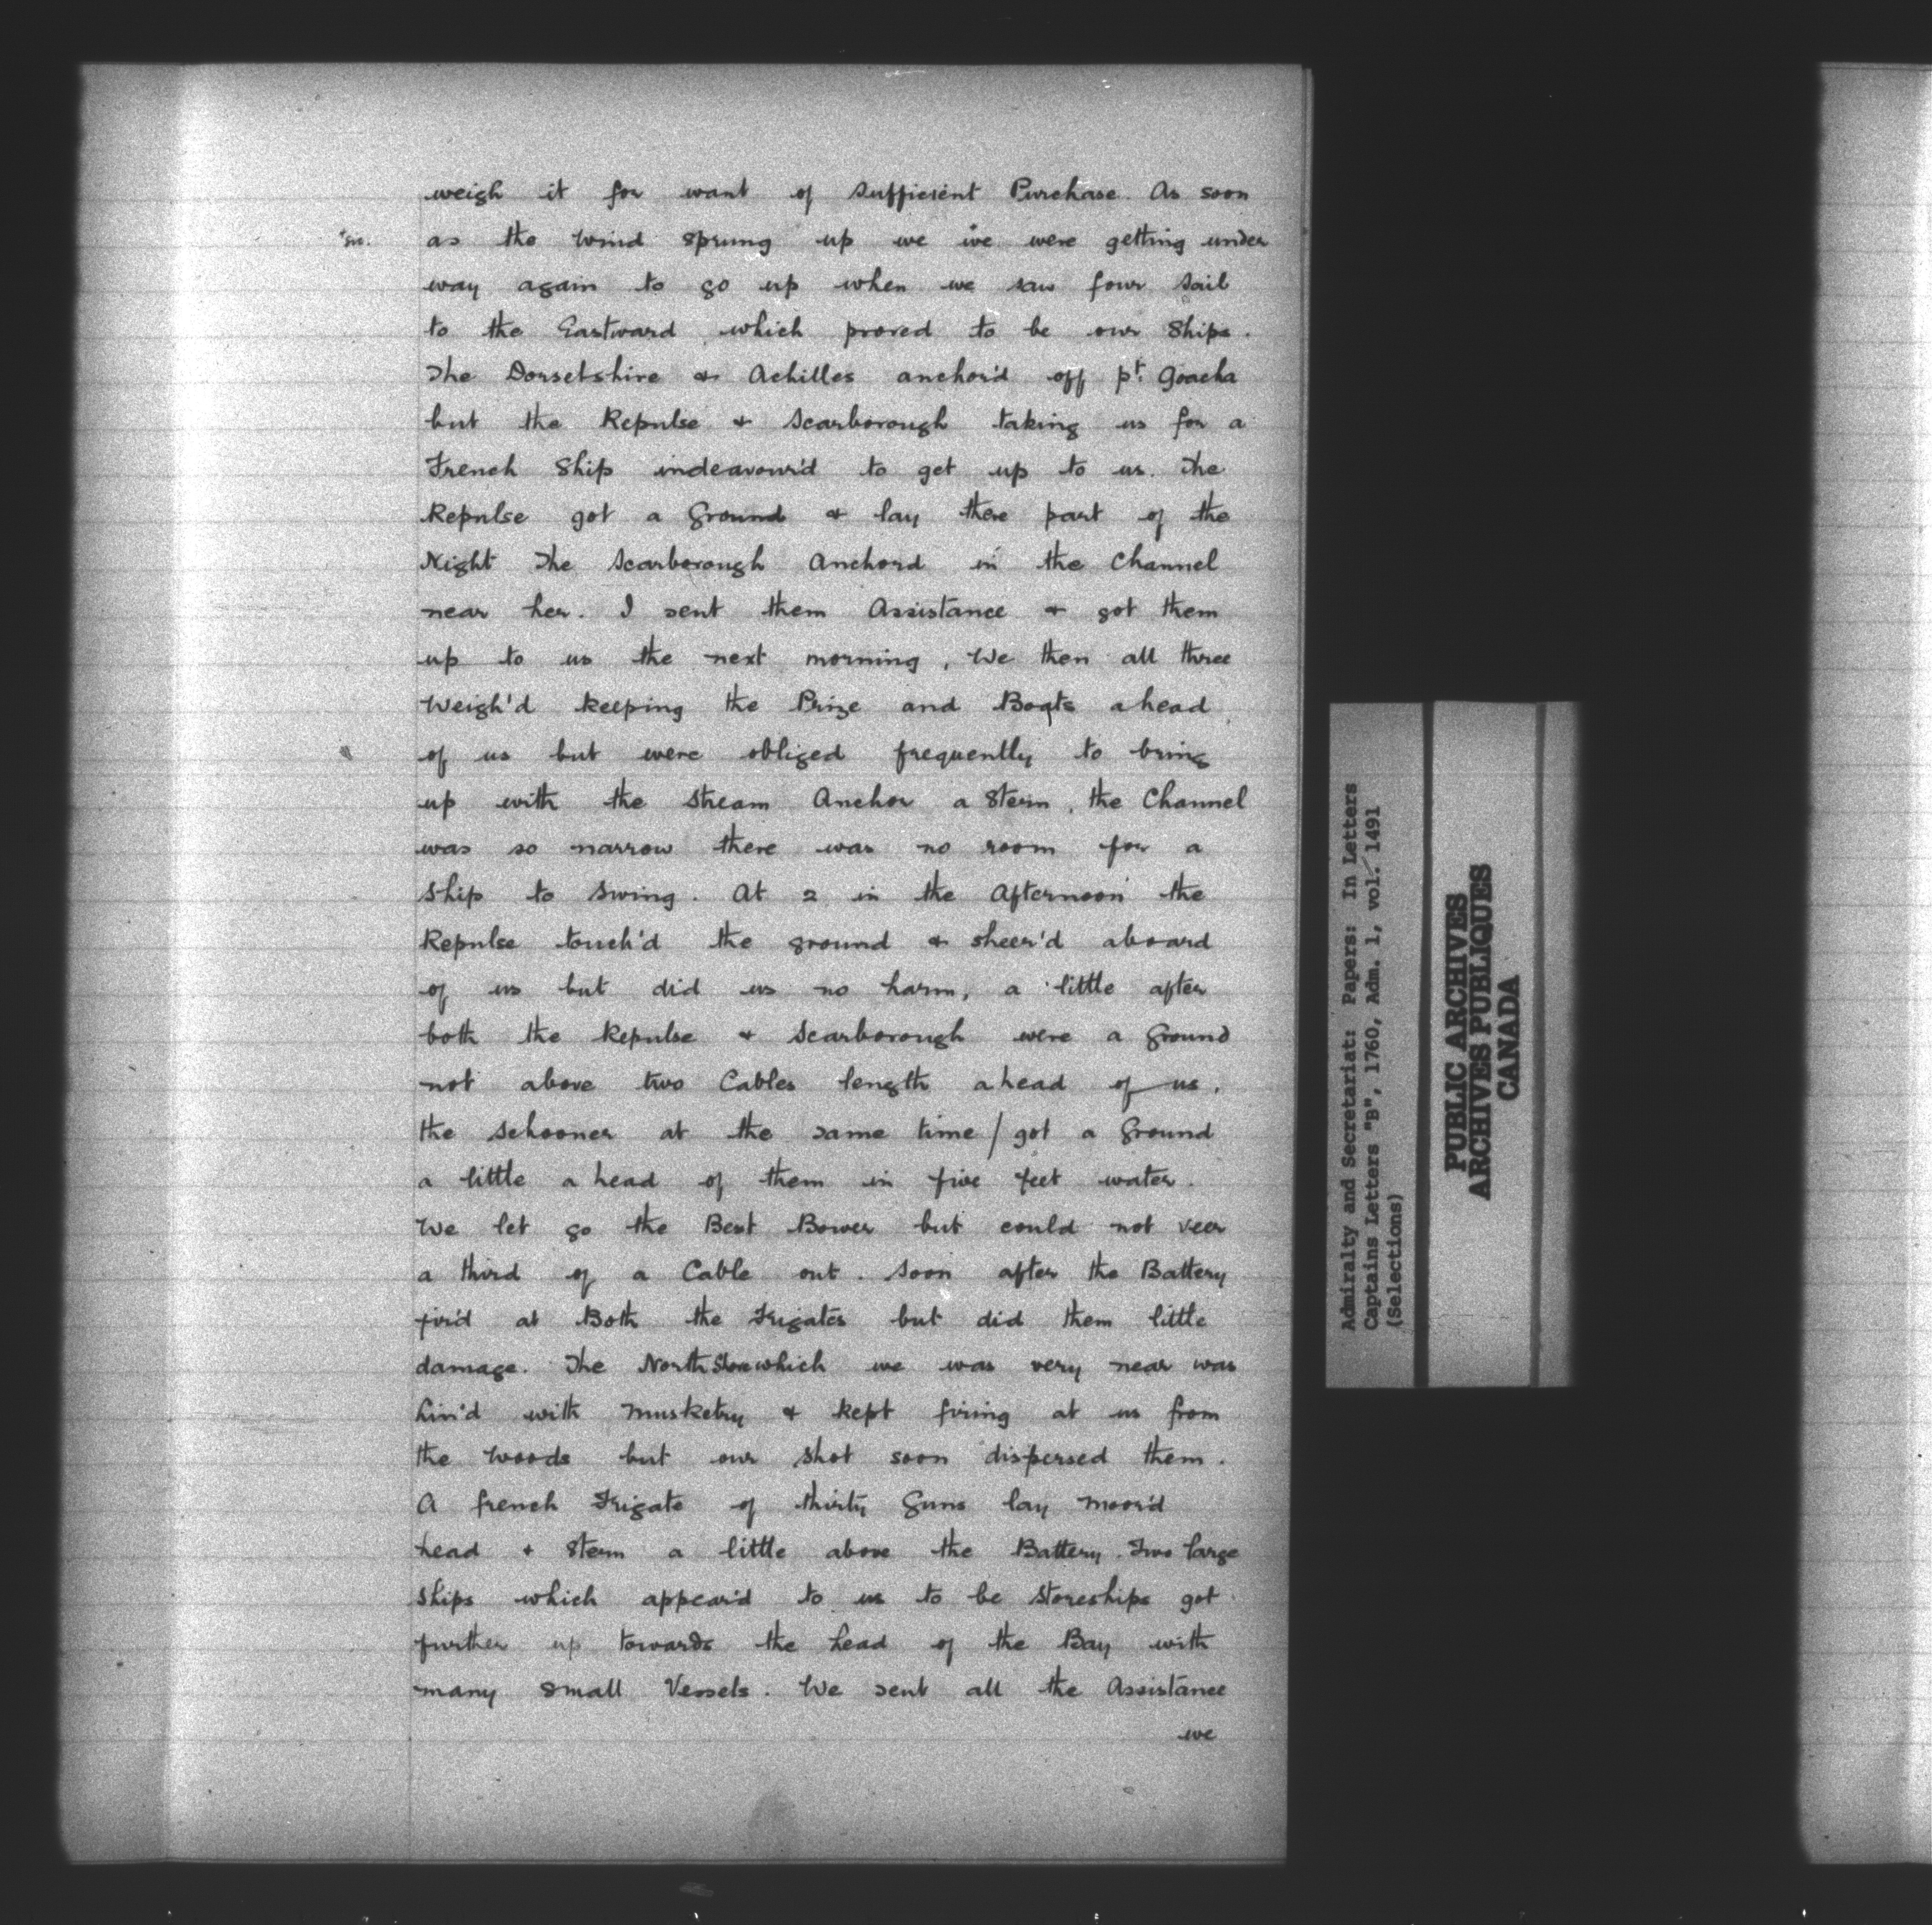 weigh it for want of sufficient Purchase. As soon
as the wind sprung up we we were getting under
way again to go up when we saw four sail
to the Eastward, which proved to be our Ships.
The Dorsetshire & Achilles anchor'd off pt. Goacha
but the Repulse & Scarborough taking us for a
French Ship indeavour'd to get up to us. The
Repulse got a Ground & lay there part of the
Night The Scarborough Anchord in the Channel
near her. I sent them Assistance & got them
up to us the next morning, We then all three
Weigh'd keeping the Prize and Boats ahead
of us but were obliged frequently to bring
up with the stream Anchor a Stern, the Channel
was so narrow there was no room for a
Ship to Swing. At 2 in the Afternoon the
Repulse touch'd the ground & sheer'd aboard
of us but did us no harm, a little after
both the Repulse & Scarborough were a Ground
not above two Cables length ahead of us.
the schooner at the same time / got a Ground
a little a head of them in five feet water.
We let go the Best Bower but could not veer
a third of a Cable out. Soon after the Battery
fir'd at Both the Frigates but did them little
damage. The North Shore which we was very near was
lin'd with musketry & kept firing at us from
the woods but our shot soon dispersed them.
A french Frigate of thirty Guns lay moor'd
head & Stern a little above the Battery. Two large
Ships which appear'd to us to be Storeships got
further up towards the head of the Bay with
many small Vessels. We sent all the Assistance
we
Admiralty and Secretariat: Papers: In Letters
Captains Letters "B", 1760, Adm. 1, vol. 1491
(Selections)
PUBLIC ARCHIVES
ARCHIVES PUBLIQUES
CANADA